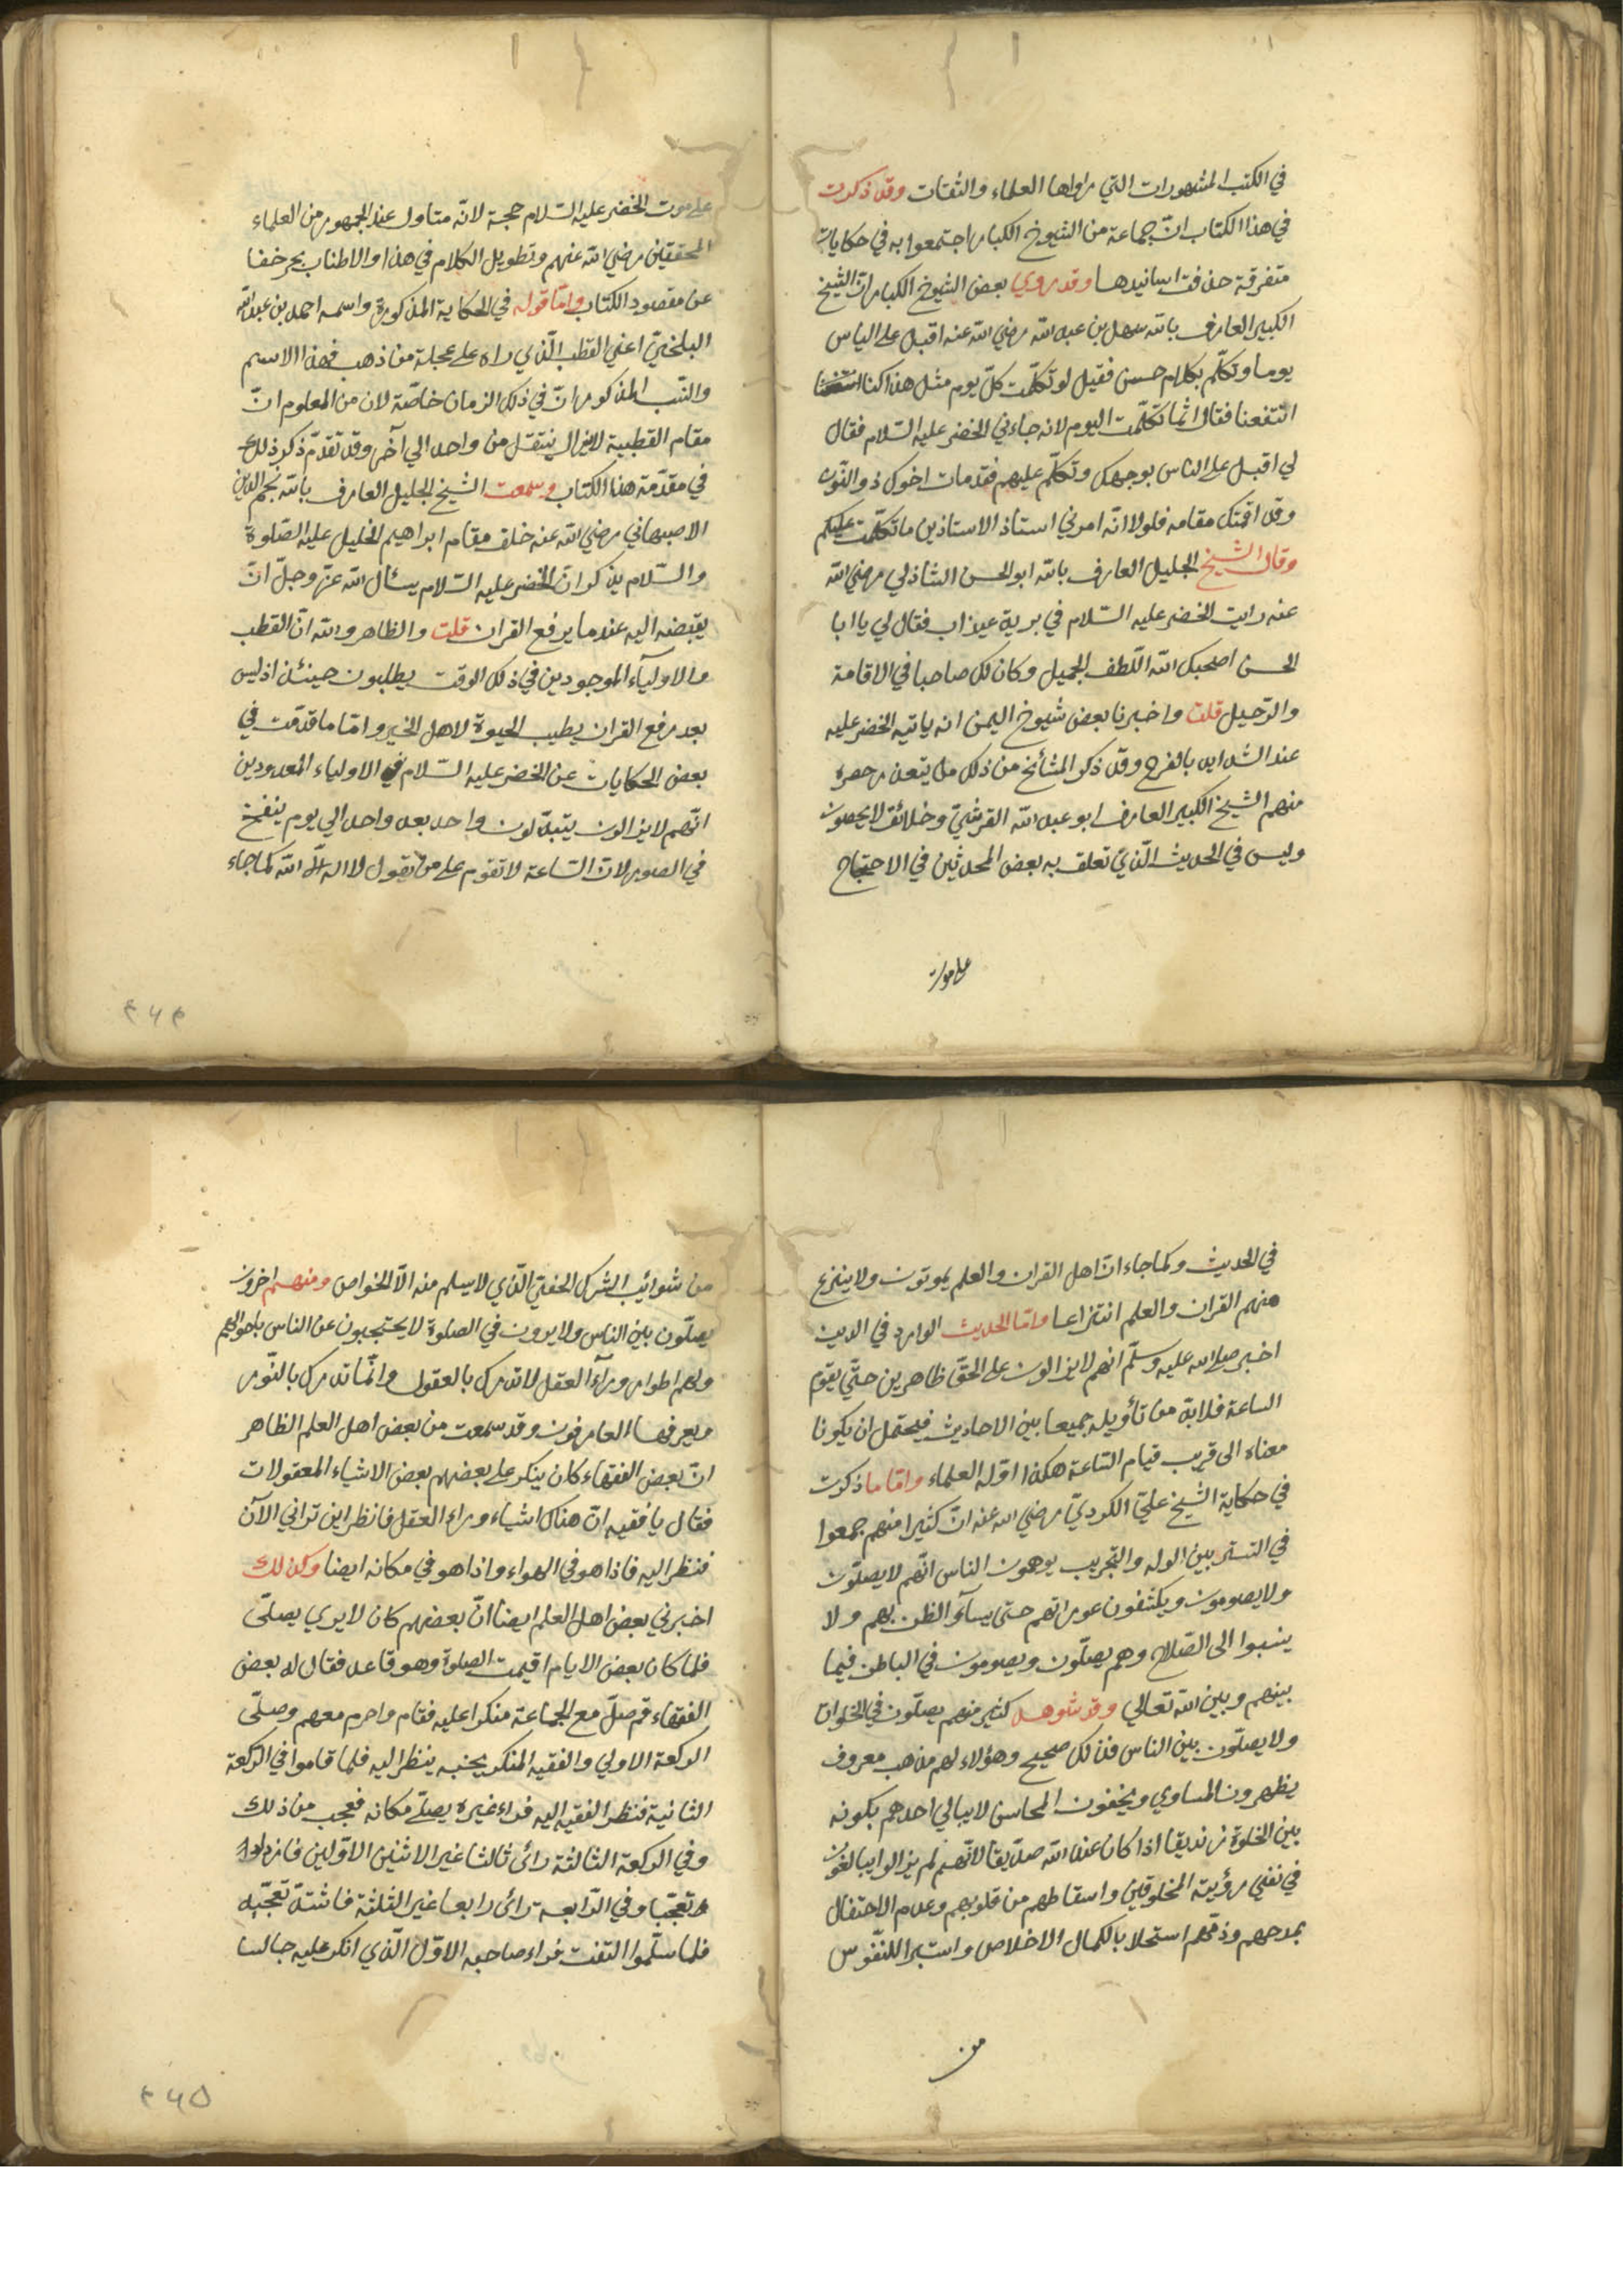 في الكتب المشهورات التي رواها العلماء والثقات وقد ذكرت
في هذا الكتاب انّ جماعة من الشيوخ الكبار اجتمعوا به في حكايات
متفرقة حذفت اسانيدها وقد روي بعض الشيوخ الكبار انّ الشيخ
الكبير العارف بالله سهل بن عبد الله رضي الله عنه اقبل على الناس
يوما وتكلّم بكلام حسن فقيل لو تكلّمت كلّ يوم مثل هذا كنا
انتفعنا فقال انّما تكلّمت اليوم لانه جاءني الخضر عليه السّلام فقال
لي اقبل على الناس بوجهك وتكلّم عليهم فقد مات اخوك ذو النّون
وقد اقمتك مقامه فلولا انّه امرني استاذ الاستاذين ما تكلّمت عليكم
وقال الشيخ الجليل العارف بالله ابو الحسن الشاذلي رضي الله
عنه رايت الخضر عليه السّلام في برية عيذاب فقال لي يا ابا
الحسن اصحبك الله اللّطف الجميل وكان لك صاحبا في الاقامة
والرّحيل قلت واخبرنا بعض شيوخ اليمن انه ياتيه الخضر عليه
عند الشدايد بالفرج وقد ذكر المشائخ من ذلك ما يتعذر حصره
منهم الشيخ الكبير العارف ابو عبد الله القرشيّ وخلائق لا يحصون
وليس في الحديث الّذي تعلق به بعض المحدثين في الاحتجاج
على موت
على موت الخضر عليه السّلام حجة لانّه متاول عند الجمهور من العلماء
المحققين رضي الله عنهم وتطويل الكلام في هذا والاطناب يخرجنا
عن مقصود الكتاب وامّا قوله في الحكاية المذكورة واسمه احمد بن عبد الله
البلخيّ اعني القطب الّذي راه على عجلة من ذهب فهذا الاسم
والنّسب المذكوران في ذلك الزمان خاصّة لان من المعلوم انّ
مقام القطبية لا يزال ينتقل من واحد الي آخر وقد تقدّم ذكر ذلك
في مقدّمة هذا الكتاب وسمعت الشيخ الجليل العارف بالله نجم الدين
الاصبهاني رضي الله عنه خلف مقام ابراهيم الخليل عليه الصّلوة
والسّلام يذكر انّ الخضر عليه السّلام يسئال الله عزّ وجلّ انّ
يقبضه اليه عند ما يرفع القران قلت والظاهر والله انّ القطب
والاوليآء الموجودين في ذلك الوقت يطلبون حينئذ اذ ليس
بعد رفع القران يطيب الحيوة لاهل الخير وامّا ما قدّمت في
بعض الحكايات عن الخضر عليه السّلام في الاولياء المعدودين
انّهم لا يزالون يتبدّلون واحد بعد واحد الي يوم ينفخ
في الصور لانّ السّاعة لا تقوم على من يقول لا اله الّا الله كما جاء
٢٦٤
في الحديث وكما جاء انّ اهل القران والعلم يموتون ولا ينزع
منهم القران والعلم انتزاعا وامّا الحديث الوارد في الدين
اخبر صلى الله عليه وسلّم انهم لا يزالون على الحقّ ظاهرين حتّي يقوم
الساعة فلا بدّ من تأويله جميعا بين الاحاديث فيحتمل ان يكونا
معناه الى قريب قيام السّاعة هكذا اوّله العلماء وامّا ما ذكرت
في حكاية الشيخ عليّ الكرديّ رضي الله عنه انّ كثيرا منهم جمعوا
في التستر بين الوله والتجريب يوهمون الناس انّهم لا يصلّون
ولا يصومون ويكشفون عوراتهم حتى يسآؤ الظن بهم ولا
ينسبوا الى الصّلاح وهم يصلّون ويصومون في الباطن فيما
بينهم وبين الله تعالي وقد شوهد كثير منهم يصلّون في الخلوات
ولا يصلّون بين الناس فذلك صحيح وهؤلاء لهم مذهب معروف
يظهرون المساوي ويخفون المحاسن لا يبالي احدهم بكونه
بين الخلوة زنديقا اذا كان عند الله صدّيقا لانّهم لم يزالوا يبالغون
في نفي رؤية المخلوقين واسقاطهم من قلوبهم وعدم الاحتفال
بمدحهم وذمّهم استجلابا لكمال الاخلاص واستبرا للنّفوس
من
من شوائب الشرك الخفيّ الّذي لا يسلم منه الّا الخواص ومنهم اخرون
يصلّون بين الناس ولا يرون في الصلوة لا يحتجبون عن الناس باحوالهم
ولهم اطوار ورآء العقل لا تدرك بالعقول وانّما تدرك بالنّور
ويعرفها العارفون وقد سمعت من بعض اهل العلم الظاهر
انّ بعض الفقهاء كان ينكر على بعضهم بعض الاشياء المعقولات
فقال يا فقيه انّ هناك اشياء وراء العقل فانظر اين تراني الآن
فنظر اليه فاذا هو في الهواء واذا هو في مكانه ايضا وكذلك
اخبرني بعض اهل العلم ايضا انّ بعضهم كان لا يري يصلّى
فلما كان بعض الايام اقيمت الصلوة وهو قاعد فقال له بعض
الفقهاء قم صلّ مع الجماعة منكرا عليه فقام واحرم معهم وصلّى
الركعة الاولي والفقيه المنكر بجنبه ينظر اليه فلما قاموا في الركعة
الثانية فنظر الفقيه اليه فراء غيره يصلّي مكانه فعجب من ذلك
وفي الركعة الثالثة رائى ثالثا غير الاثنين الاوّلين فازداد
تعجّبا وفي الرّابعة رائى رابعا غير الثلثة فاشتدّ تعجّبه
فلما سلّموا التفت فراء صاحبه الاوّل الّذي انكر عليه جالسا
٢٦٥